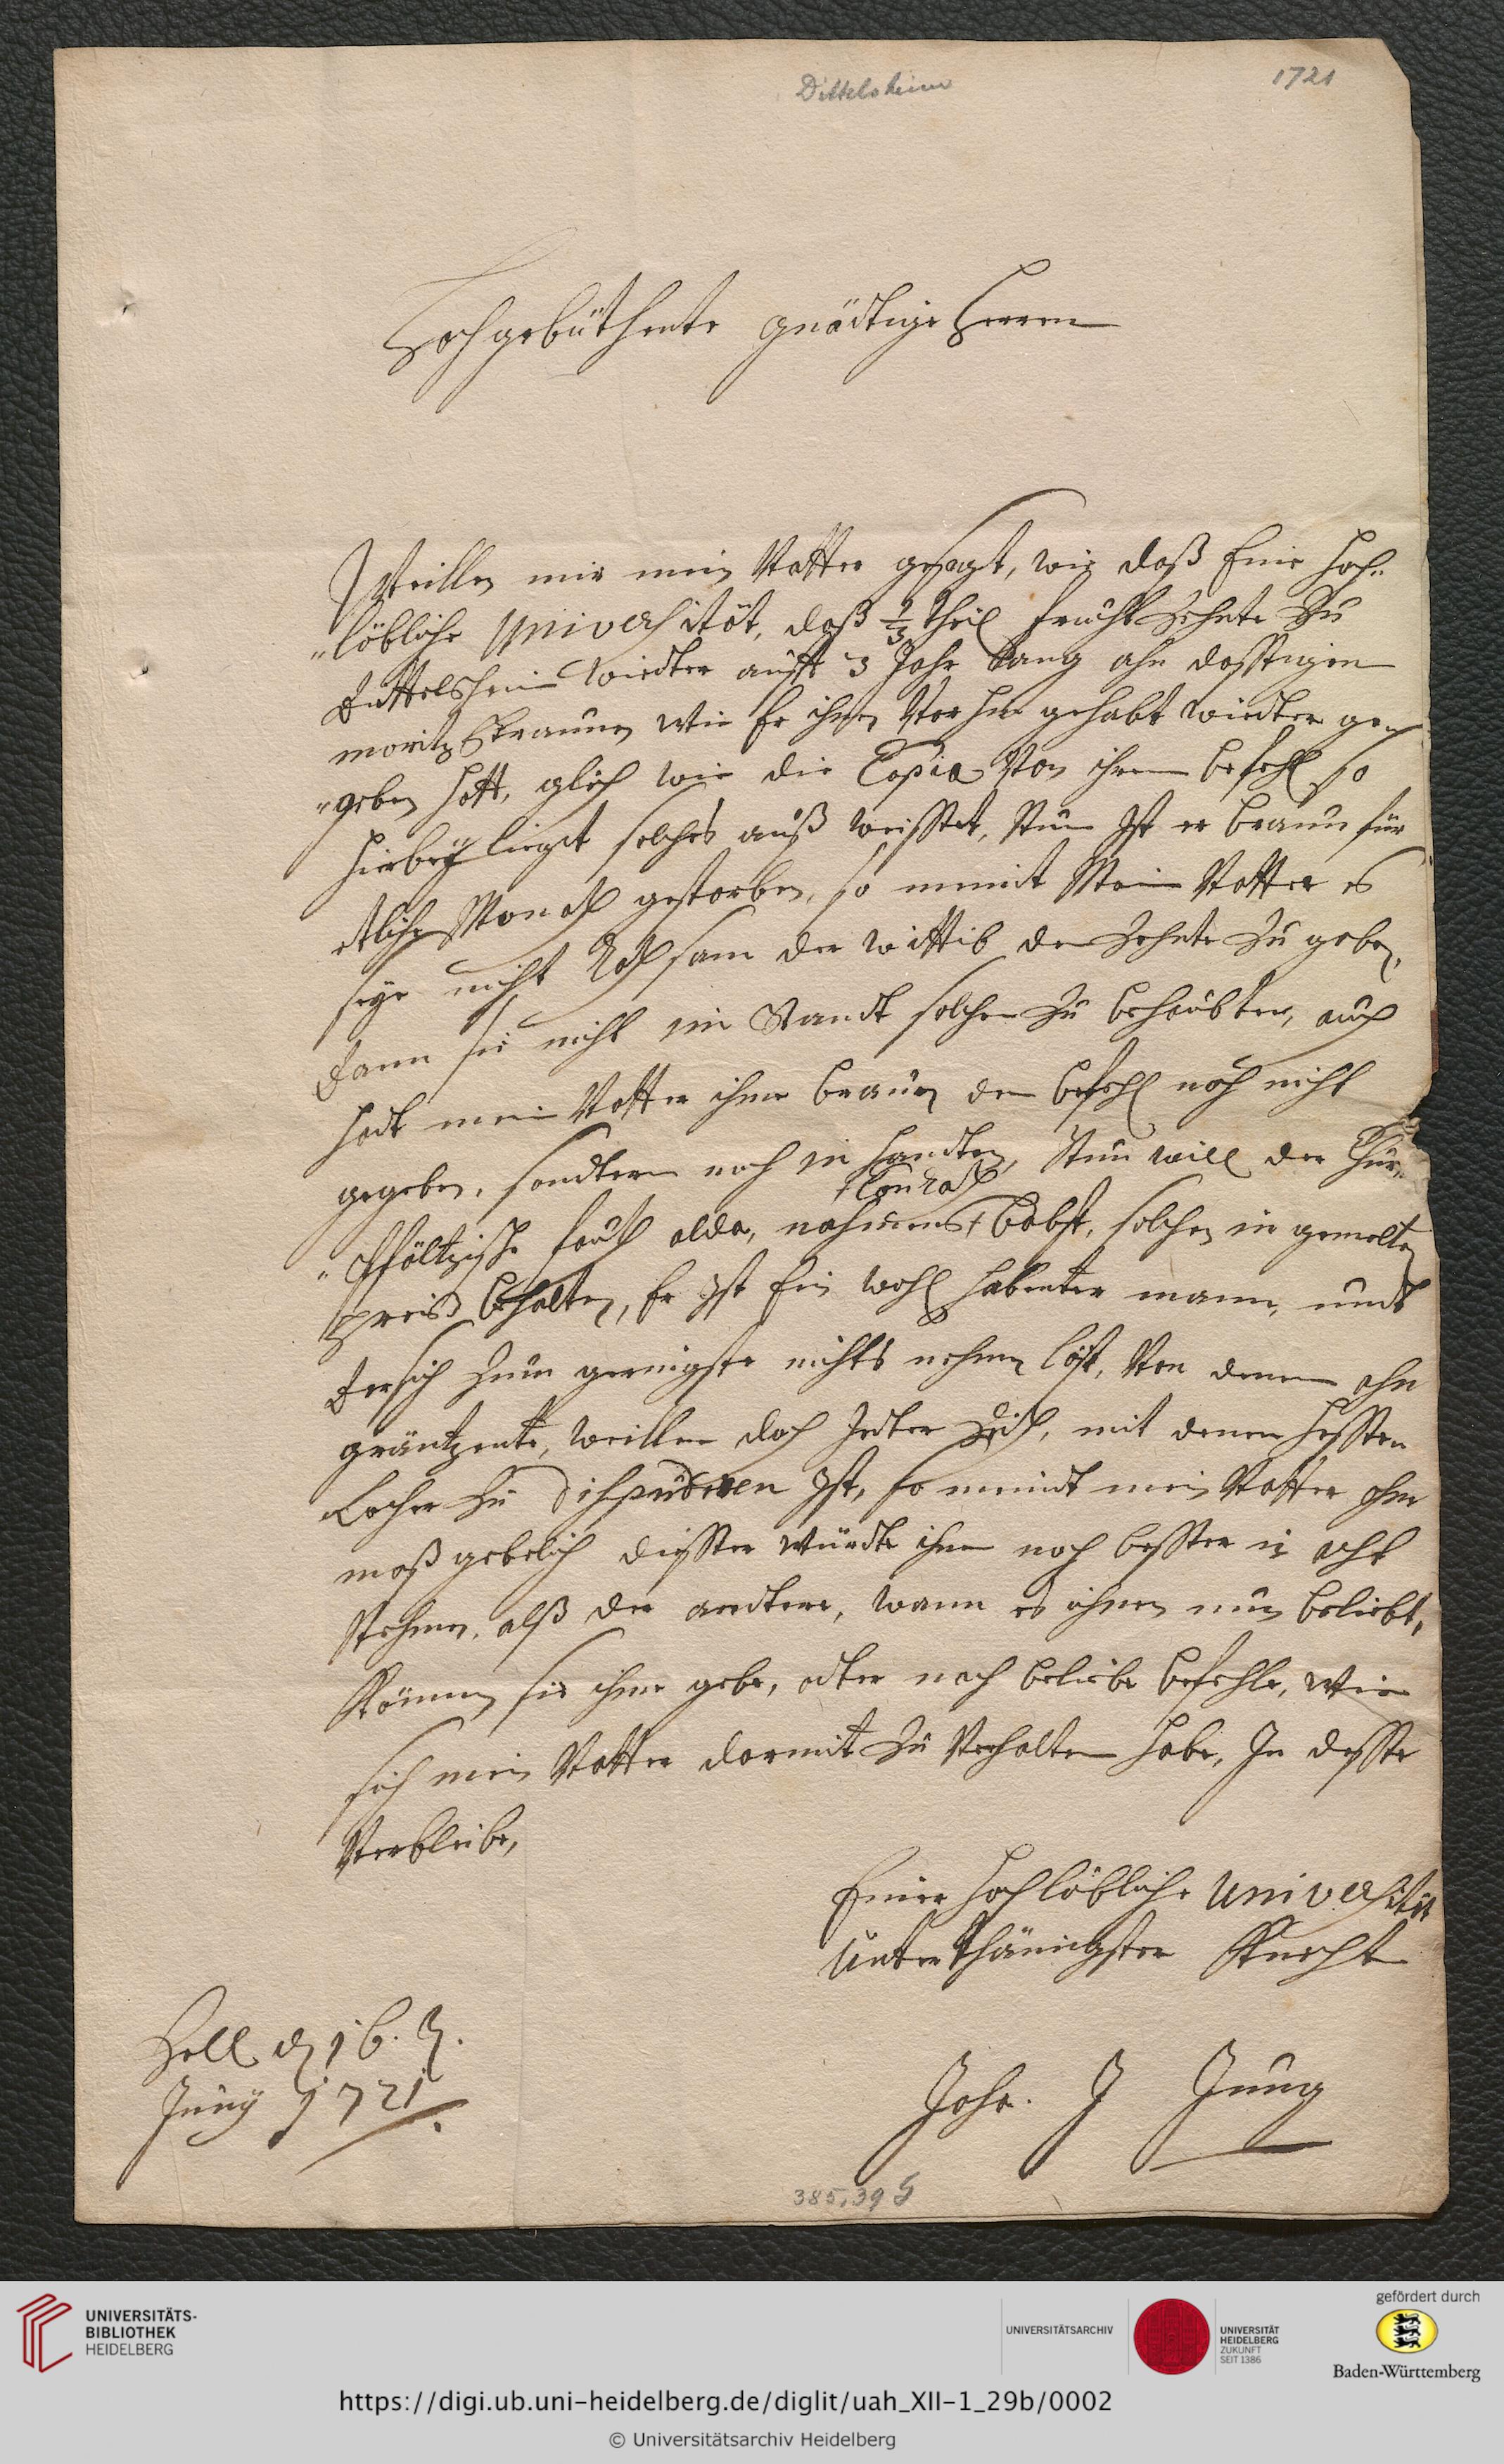 Dittelsheim
1721
Hochgebüthente gnädtige Herren
Weillen mir mein Vatter gesagt, wie daß Eine hoch„
„löbliche Universität, daß 2/3 theil frucht Zehnte Zu
Dittelsheim wiedter auff 3 Jahr lang ahn dasstigen
moritz Braunen wie Er ihnen Vor hin gehabt wiedter ge„
„geben hatt, gleich wie die Copia Von ihrem befehl so
hierbey liegt solches auß weisset, Nun Ist er braun für
etliche Monath gestorben, so meint Mein Vatter es
seye nicht Rathsam der wittib den Zehnte Zu geben,
Dann sie nicht im Standt solchen Zu behaubten, auch
hadt mein Vatter ihme braun den befehl noch nicht
gegeben, sondtern noch in handten, Nun will der Chur„
† Conrath
„Pfältzische fauth alda, nahmens † babst, solchen in gemelten
preiß behalten, Er Ist Ein wohl habenter mann, undt
Der sich Zum geringsten nichts nehmen läst, Von denen ahn
gräntzente, weillen doch Jeder Zeit, mit denen Hessten
Locher Zu dispudiren Ist, so meindt mein Vatter ohn
maß gebelich diesser würdte ihn noch besser in acht
Nehmen, alß der andtere, wann es ihnen nun beliebt,
Können sie ihme geben, odter nach beliebe befehle, wie
sich mein Vatter darmit Zu Verhalten habe, In desse
Verbleibe,
Einer Hochlöbliche Universität
Unterthänigster Knecht
Zell d 16. t.
Juny 1721.
Joha. J Jung
385,39 G
UNIVERSITÄTS-
BIBLIOTHEK
HEIDELBERG
UNIVERSITÄTSARCHIV
UNIVERSITÄT
HEIDELBERG
ZUKUNFT
SEIT 1386
gefördert durch
Baden-Württemberg
https://digi.ub.uni-heidelberg.de/diglit/uah_XII-1_29b/0002
© Universitätsarchiv Heidelberg